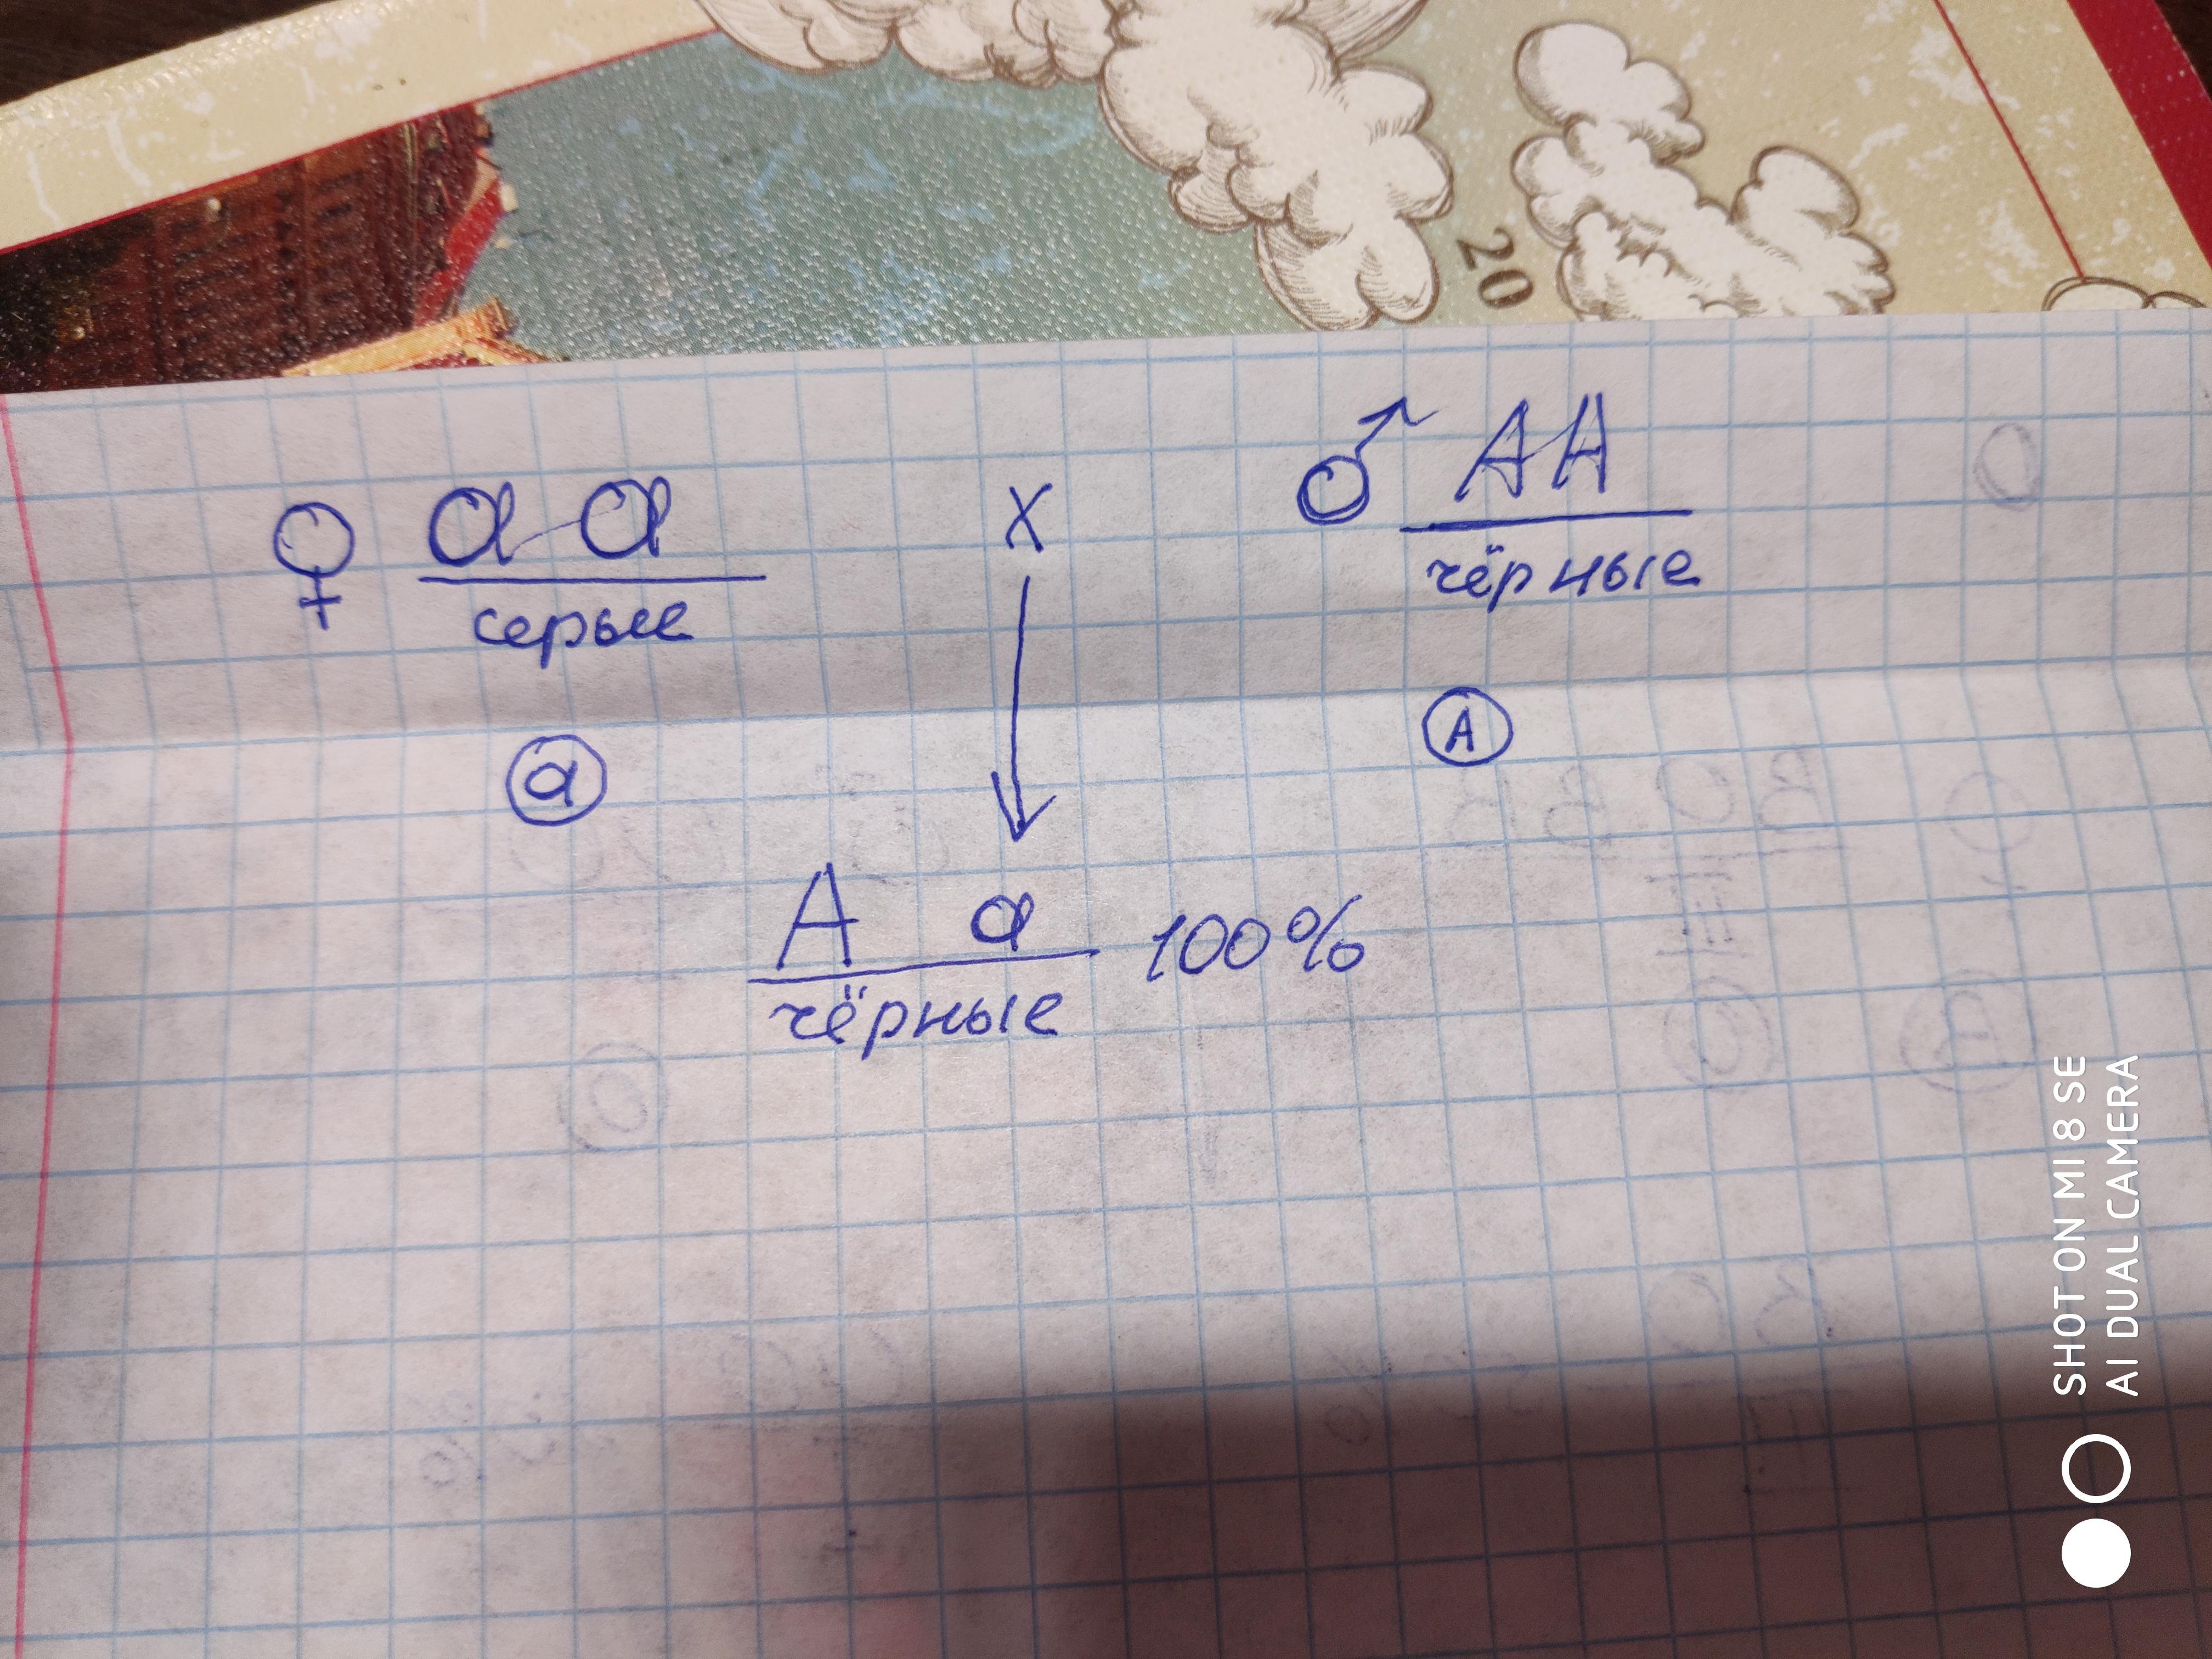 20
♀ аа × ♂ АА
серые чёрные
а А
А а 100%
чёрные
SHOT ON MI 8 SE
AI DUAL CAMERA